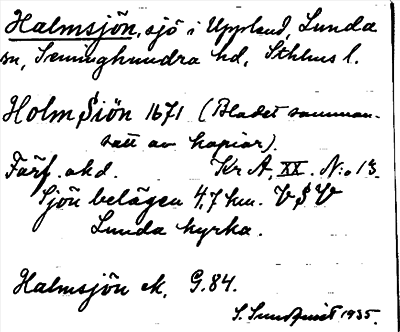 Halmsjön, sjö i Uppland, Lunda
sn, Seminghundra hd, Sthlms l.
Holm Siön 1671 (Bladet samman-
satt av kopior).
Färf. akd. Kr A, XX. N:o 13.
Sjön belägen 4,7 km. V S V
Lunda kyrka.
Halmsjön ek. G.84.
S. Sundquist 1935.